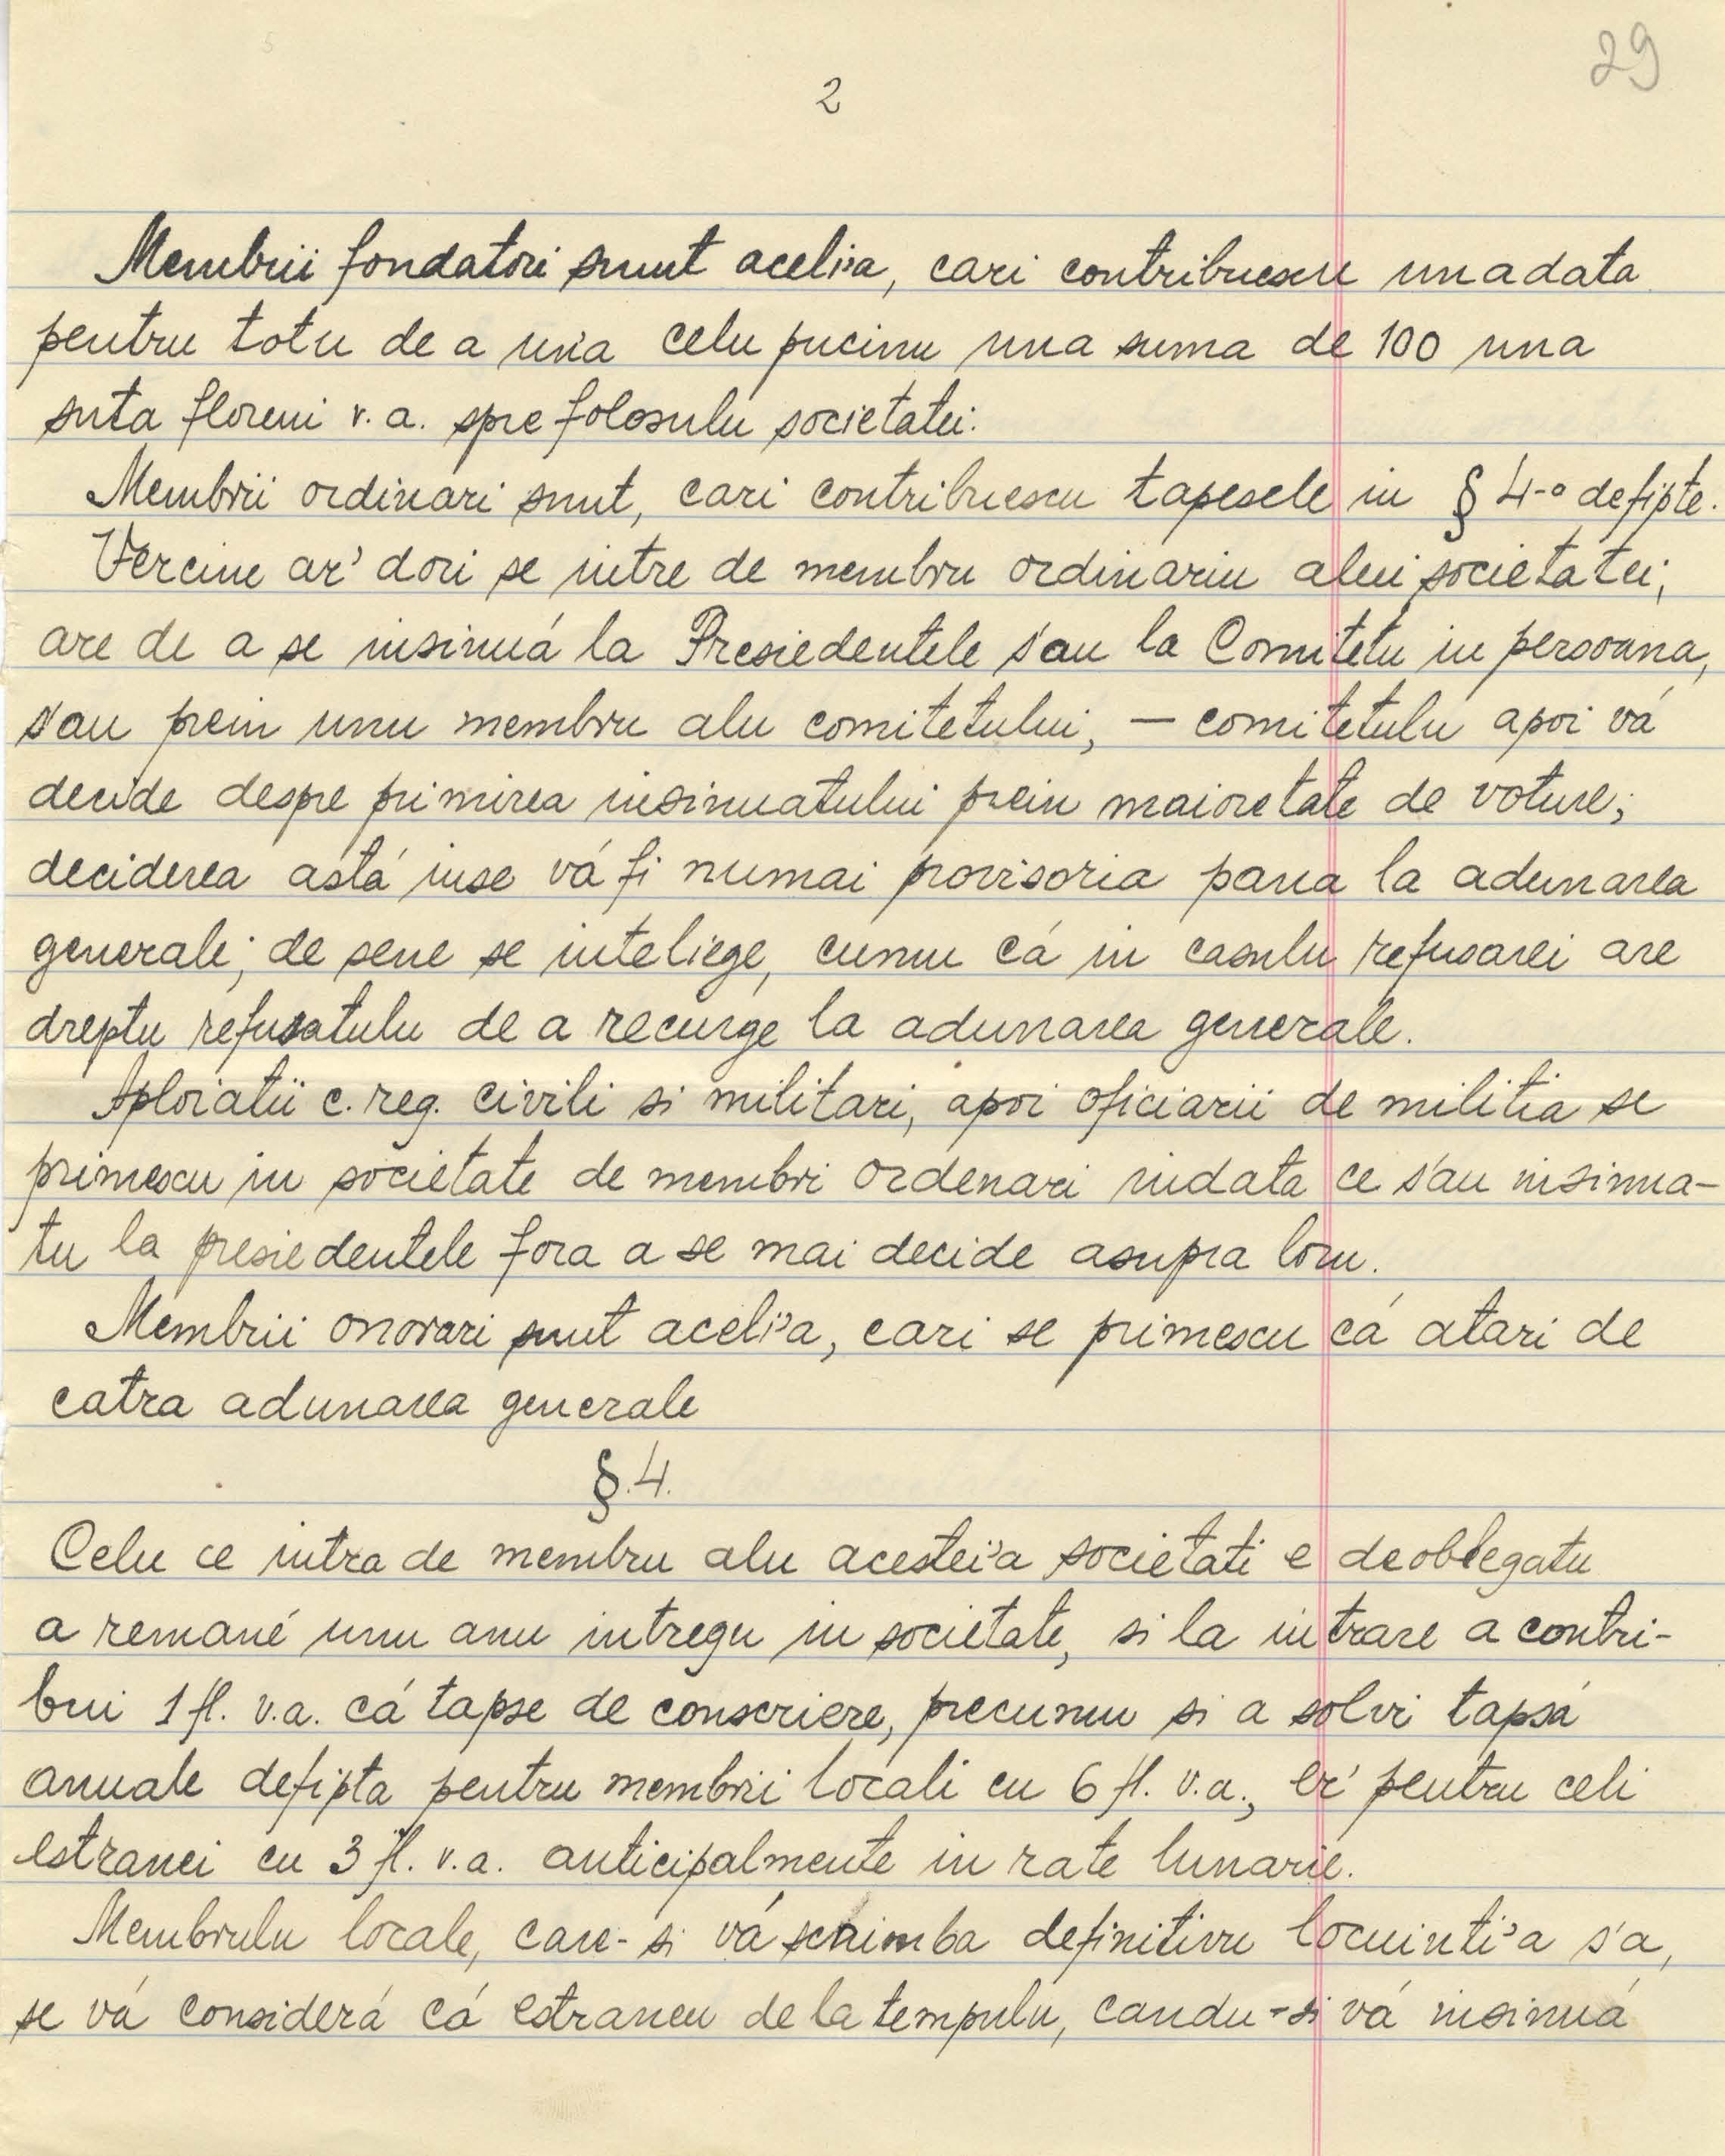 29
2
Membrii fondatori sunt aceli'a, cari contribuescu unadata
pentru totu de a un'a celu pucinu una suma de 100 una
suta floreni v.a. spre folosulu societatei.
Membrii ordinari sunt, cari contribuescu tapsele in § 4-o defipte.
Vercine ar' dori se intre de membru ordinariu alui societatei,
are de a se insinuá la Presiedentele s'au la Comitetu in persoana,
s'au prein unu membru alu comitetului, — comitetulu apoi vá
decide despre primirea insinuatului prein maioretate de voture;
deciderea astá inse vá fi numai provisoria pana la adunarea
generale; de sene se inteliege, cumu cá in casulu refusarei are
dreptu refusatulu de a recurge la adunarea generale.
Aploiatii c. reg. civili si militari, apoi oficiarii de militia se
primescu in societate de membri ordenari indata ce s'au insinua-
tu la presiedentele fora a se mai decide asupra loru.
Membrii onorari sunt aceli'a, cari se primescu cá atari de
catra adunarea generale
§.4.
Celu ce intra de membru alu acestei'a societati e deoblegatu
a remané unu anu intregu in societate, si la intrare a contri-
bui 1 fl. v.a. cá tapse de conscriere, precumu si a solvi tapsá
anuale defipta pentru membrii locali cu 6 fl. v.a., er' pentru celi
estranei cu 3 fl. v.a. anticipalmente in rate lunarie.
Membrulu locale, care-si vá schimba definitivu locuinti'a s'a,
se vá considerá cá estraneu de la tempulu, candu-si vá insinuá